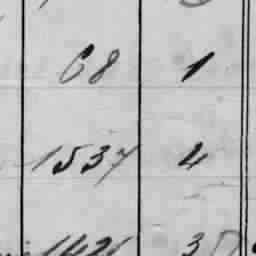 68 1
1537 4
3